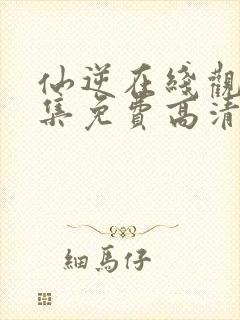 仙逆在綫觀
集免費高清
細馬仔